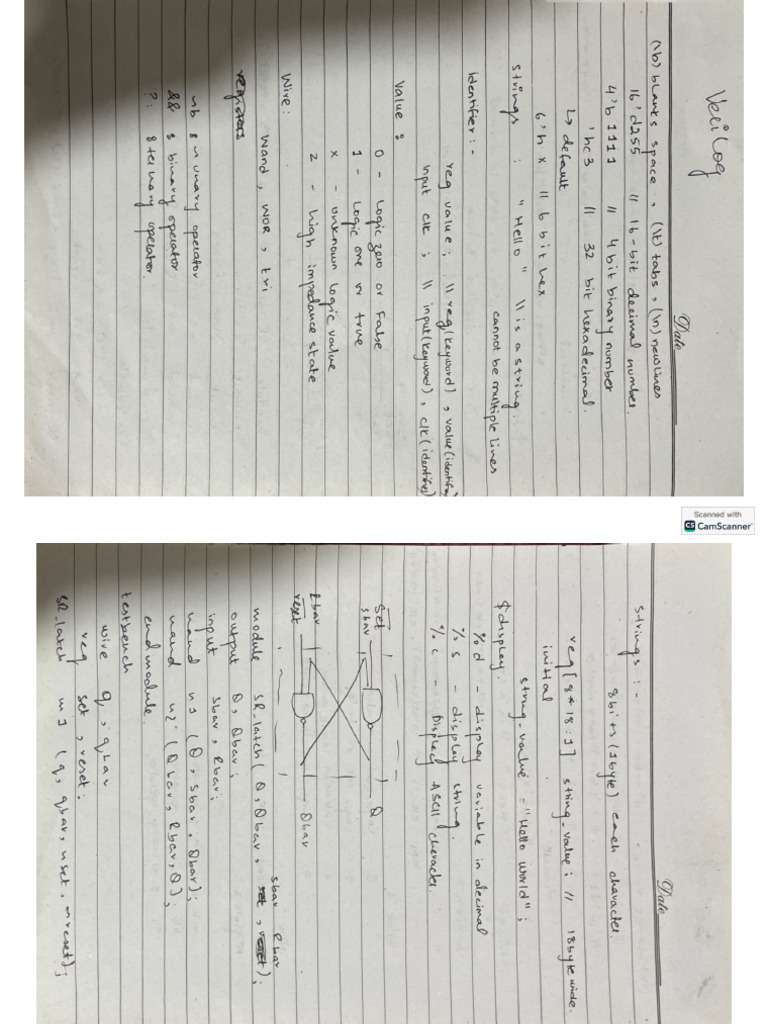 Verilog
Date
(\b) blanks space, (\t) tabs, (\n) newlines
16'd255 // 16-bit decimal number.
4'b1111 // 4 bit binary number
'hc3 // 32 bit hexadecimal.
↳ default
6'hx // 6 bit hex
strings : "Hello" // is a string.
cannot be multiple lines
Identifier :-
reg value; // reg(keyword), value(identifier)
input clk; // input(keyword), clk(identifier)
Value :
0 - Logic zero or False
1 - Logic one or true
x - unknown logic value
z - high impedance state
Wire:
wand, wor, tri
registers
&& : binary operator
?: : ternary operator.
Scanned with
CS CamScanner
Date
Strings :-
8bits (1byte) each character.
reg[8*18:1] string_value; // 18byte wide.
initial
string_value = "Hello world";
$display.
%d - display variable in decimal
%s - display string.
%c - Display ASCII character.
Set
sbar
Q
Rbar
reset
Qbar
sbar Rbar
module SR_latch(Q, Qbar, set, reset);
output Q, Qbar;
input sbar, Rbar;
nand n1 (Q, sbar, Qbar);
nand n2 (Qbar, Rbar, Q);
endmodule.
testbench
wire q, qbar
reg set, reset;
SR_latch m1 (q, qbar, nset, nreset);